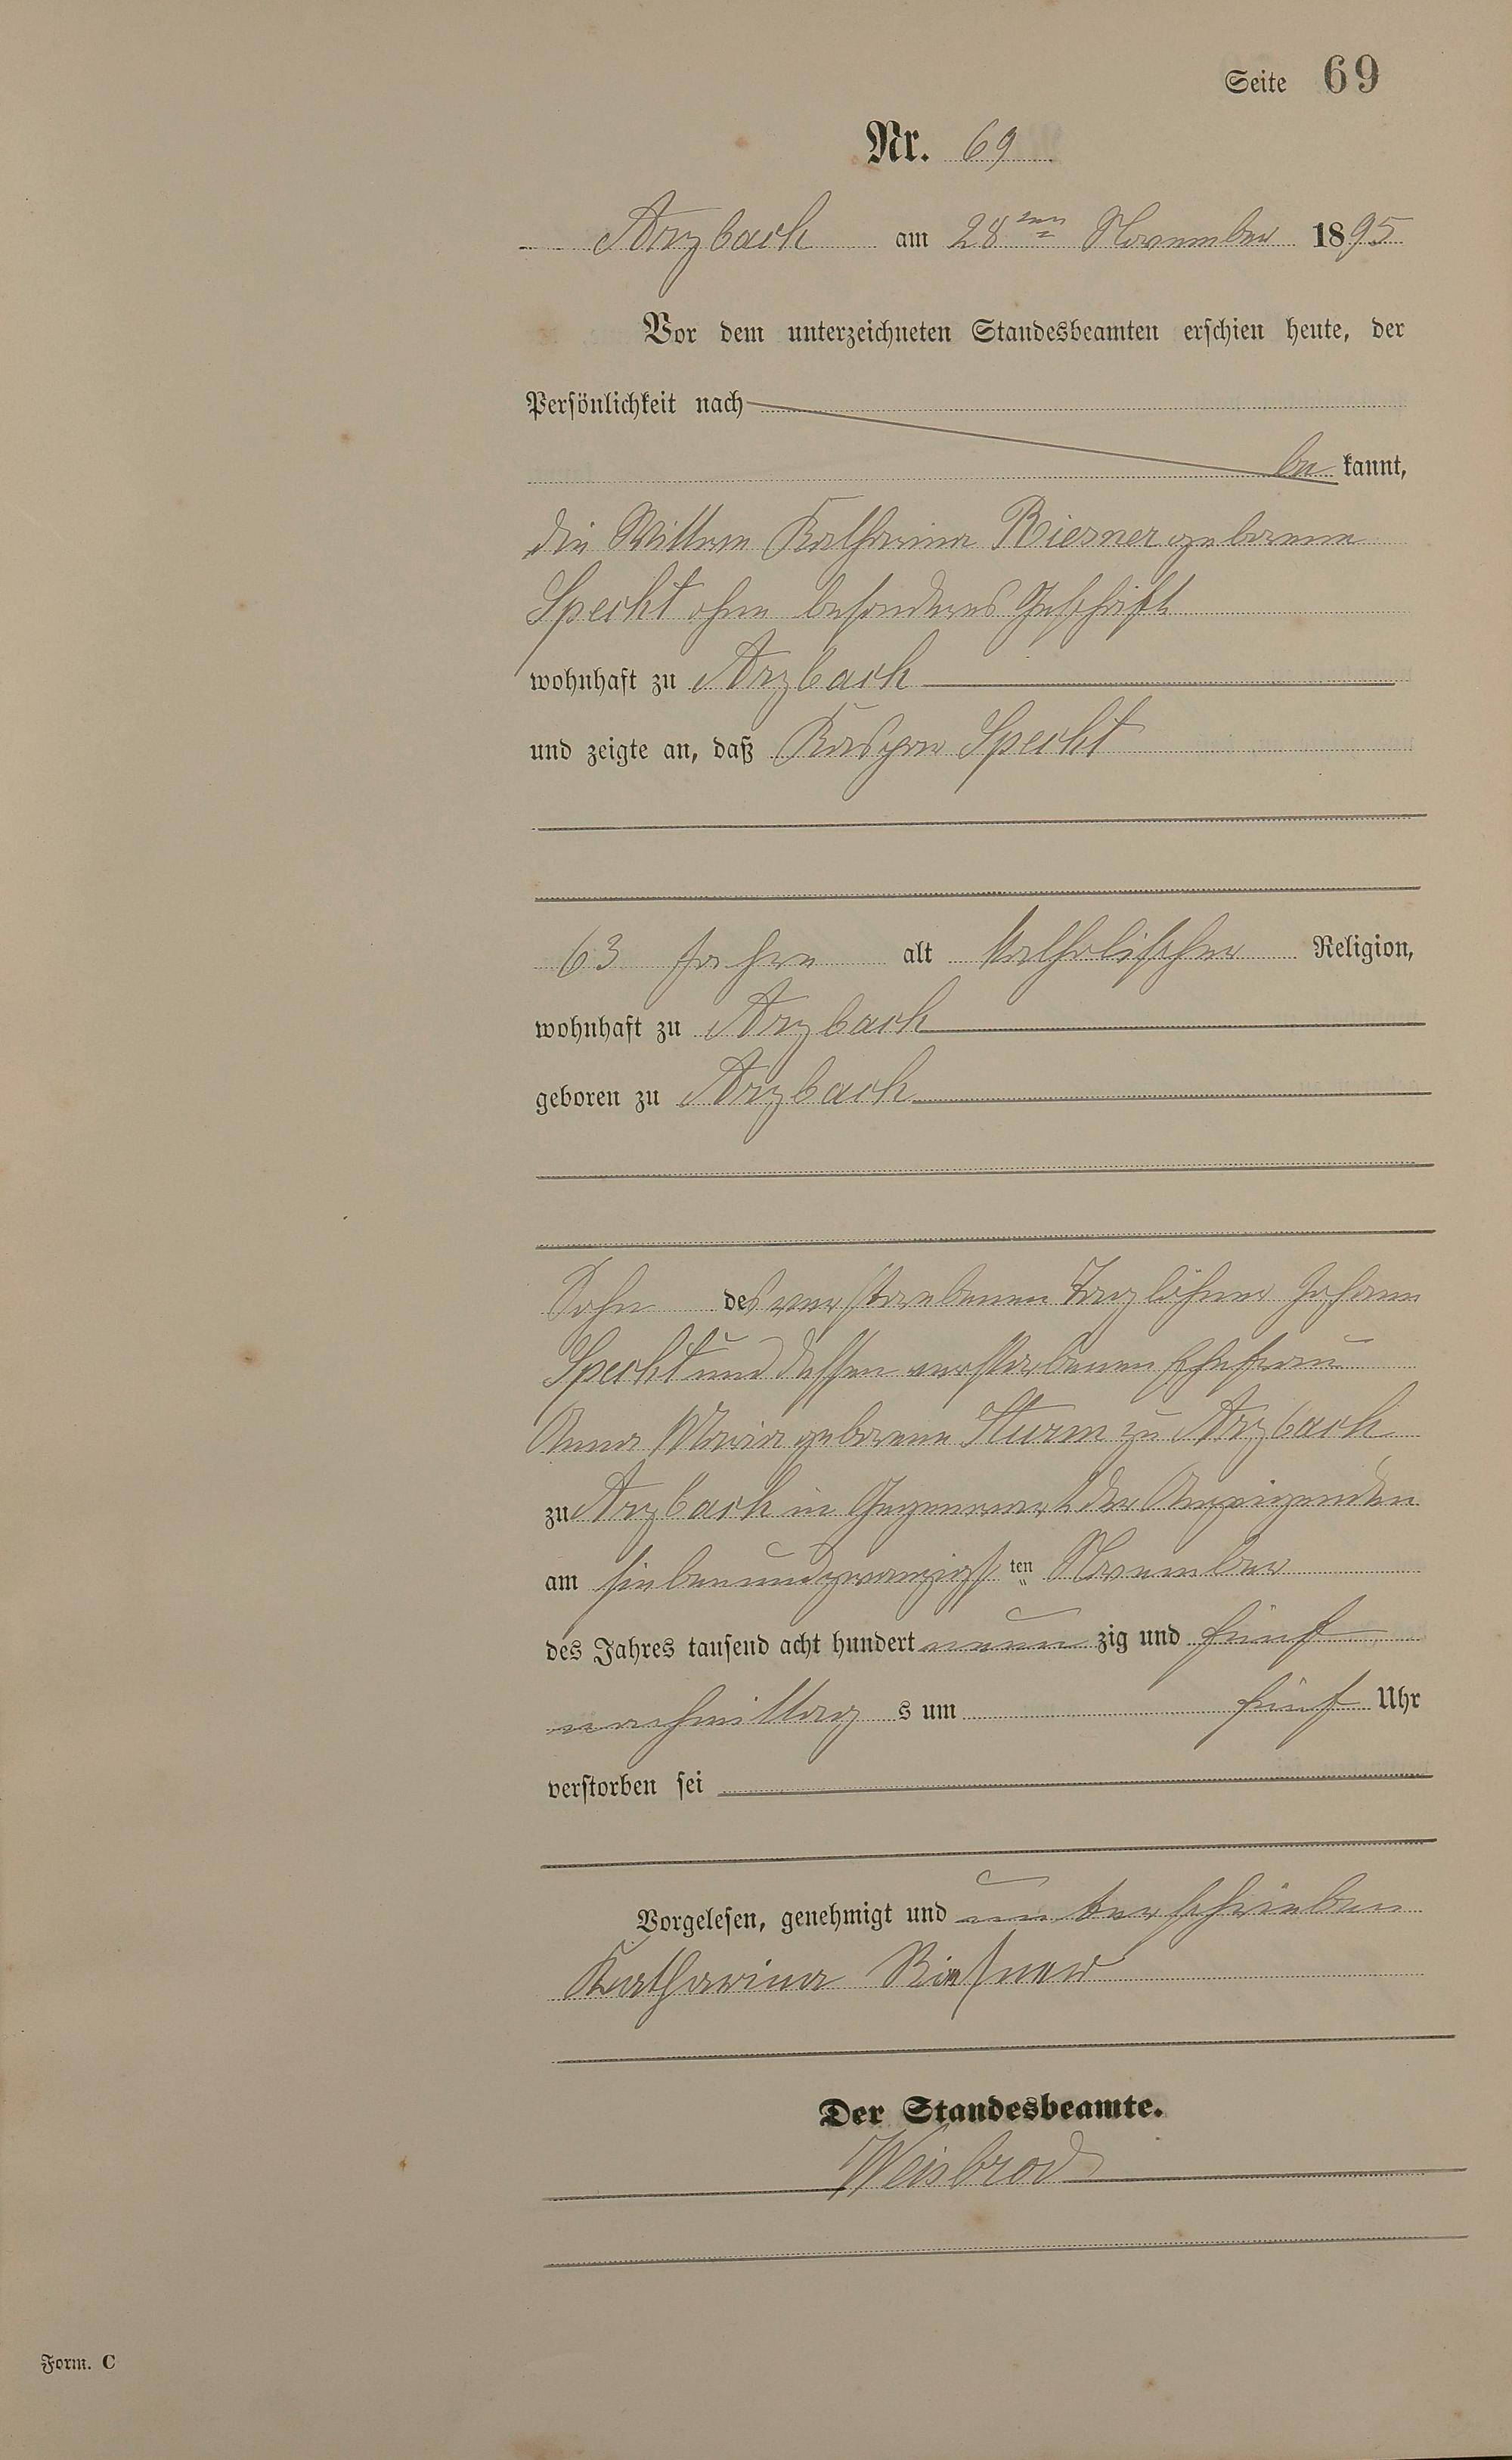 Seite 69
Nr. 69
Arzbach am 28ten November 1895
Vor dem unterzeichneten Standesbeamten erschien heute, der
Persönlichkeit nach
be kannt,
die Wittwe Katharina Biesner geborene
Specht ohne besonderes Geschäft
wohnhaft zu Arzbach
und zeigte an, daß Kaspar Specht
63 Jahre alt katholischer Religion,
wohnhaft zu Arzbach
geboren zu Arzbach
Sohn des verstorbenen Taglöhner Johann
Specht und dessen verstorbenen Ehefrau
Anna Maria geborene Sturm zu Arzbach
zu Arzbach in Gegenwart der Anzeigenden
am siebenundzwanzigsten November
des Jahres tausend acht hundert neun zig und fünf
nachmittag s um fünf Uhr
verstorben sei
Vorgelesen, genehmigt und unterschrieben
Katharina Biesner
Der Standesbeamte.
Weisbrod
Form. C